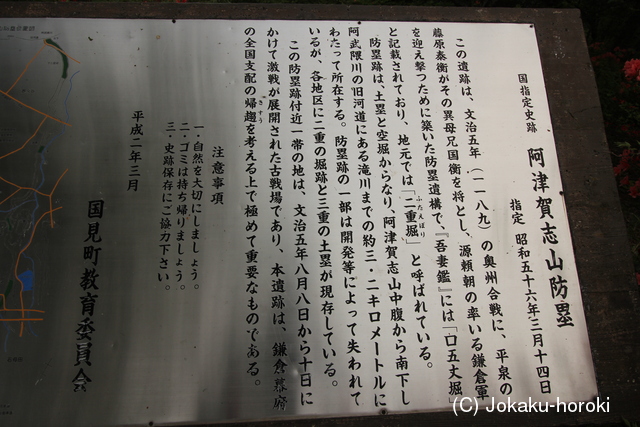 国指定史跡 阿津賀志山防塁
指定 昭和五十六年三月十四日
この遺跡は、文治五年（一一八九）の奥州合戦に、平泉の
藤原泰衡がその異母兄国衡を将とし、源頼朝の率いる鎌倉軍
を迎え撃つために築いた防塁遺構で、『吾妻鏡』には「口五丈堀」
と記載されており、地元では「二重堀」と呼ばれている。
ふたえぼり
防塁跡は、土塁と空堀からなり、阿津賀志山中腹から南下し
阿武隈川の旧河道にある滝川までの約三・二キロメートルに
わたって所在する。防塁跡の一部は開発等によって失われて
いるが、各地区に二重の堀跡と三重の土塁が現存している。
この防塁跡付近一帯の地は、文治五年八月八日から十日に
かけて激戦が展開された古戦場であり、本遺跡は、鎌倉幕府
の全国支配の帰趨を考える上で極めて重要なものである。
きすう
注意事項
一・自然を大切にしましょう。
二・ゴミは持ち帰りましょう。
三・史跡保存にご協力下さい。
平成二年三月
国見町教育委員会
(C) Jokaku-horoki